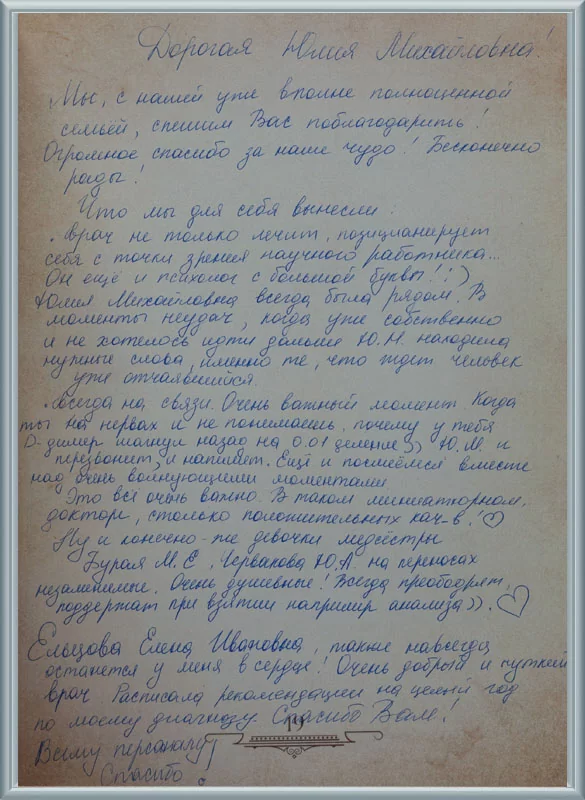 Дорогая Юлия Михайловна!
Мы, с нашей уже вполне полноценной
семьёй, спешим Вас поблагодарить!
Огромное спасибо за наше чудо! Бесконечно
рады!
Что мы для себя вынесли.
. Врач не только лечит, позицианирует
себя с точки зрения научного работника...
Он ещё и психолог с большой буквы! :)
Юлия Михайловна всегда была рядом. В
моменты неудач, когда уже собственно
и не хотелось идти дальше Ю.М. находила
нужные слова, именно те, что ждет человек
уже отчаявшийся.
. Всегда на связи. Очень важный момент. Когда
ты на нервах и не понимаешь, почему у тебя
D-димер шагнул назад на 0.01 деление)) Ю.М. и
перезвонит, и напишет. Ещё и посмеёмся вместе
над очень волнующими моментами
Это всё очень важно. В таком миниатюрном,
докторе, столько положительных кач-в!
Ну и конечно-же девочки медсёстры
Бурая М.Е, Червакова Ю.А. на переносах
незаменимые. Очень душевные! Всегда преободрят,
поддержат при взятии например анализа)).
Ельцова Елена Ивановна, также навсегда
останется у меня в сердце! Очень добрый и чуткий
врач. Расписала рекомендации на целый год
по моему диагнозу. Спасибо Вам!
19
Всему персоналу
Спасибо!